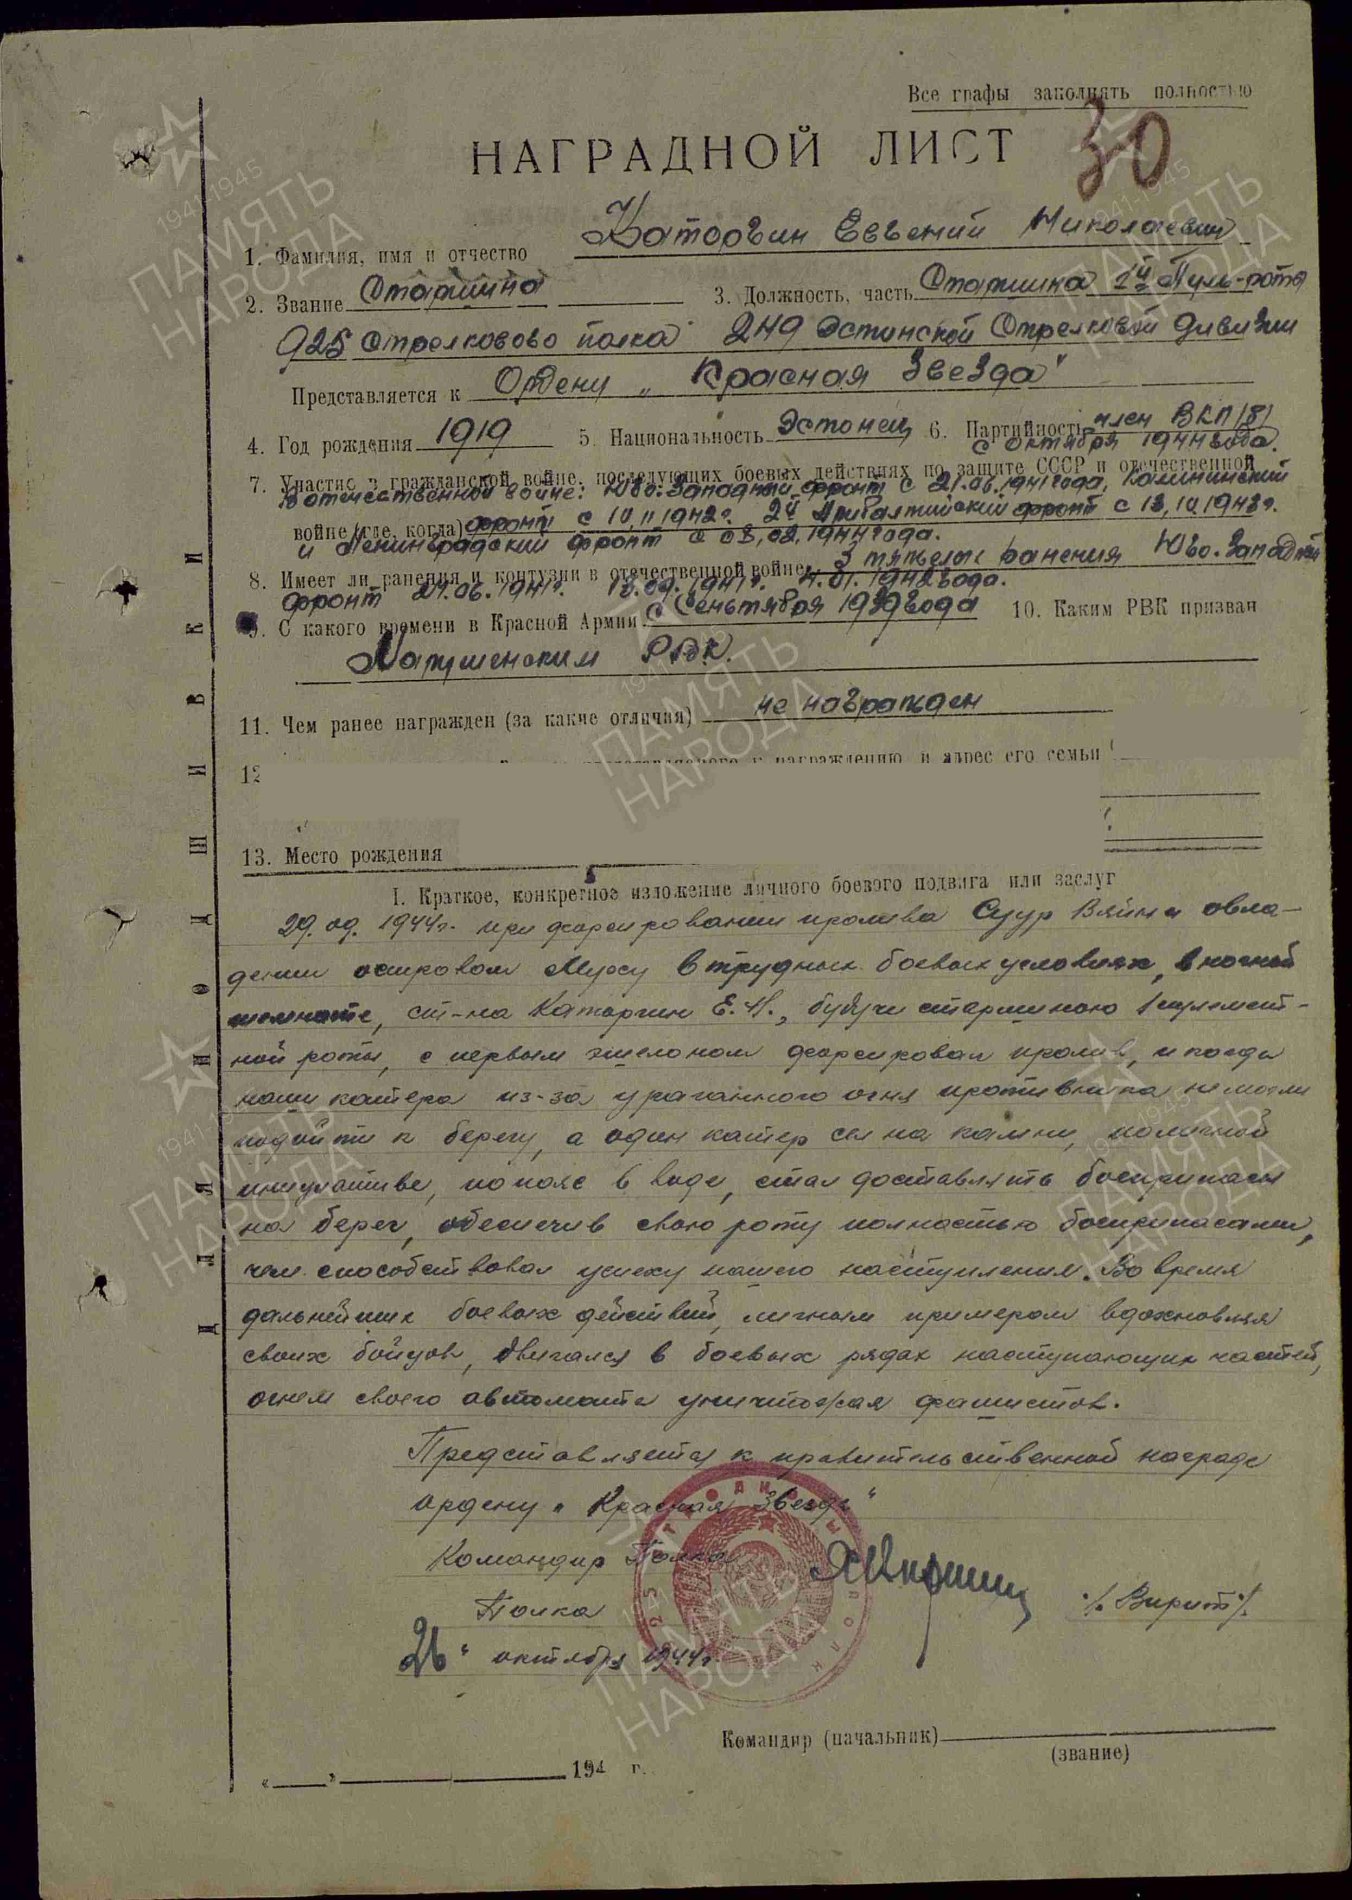 Все графы заполнять полностью
30
НАГРАДНОЙ ЛИСТ
1. Фамилия, имя и отчество Каторгин Евгений Николаевич
2. Звание Старшина 3. Должность, часть Старшина 1й Пуль-роты
925 Стрелкового полка 249 Эстинской Стрелковой дивизии
Представляется к Ордену „Красная Звезда"
4. Год рождения 1919 5. Национальность Эстонец 6. Партийность член ВКП/б/
с октября 1944 года.
7. Участие в гражданской войне, последующих боевых действиях по защите СССР и отечественной
В отечественной войне: Юго-Западный фронт с 21.06.1941 года, Калининский
войне (где, когда) фронт с 10.11.1942г. 2й Прибалтийский фронт с 13.10.1943г.
и Ленинградский фронт с 03.02.1944 года.
8. Имеет ли ранения и контузии в отечественной войне 3 тяжелые ранения Юго-Западный
фронт 24.06.1941г. 4.01.1942 года.
9. С какого времени в Красной Армии с Сентября 1939 года 10. Каким РВК призван
РВК.
11. Чем ранее награжден (за какие отличия) не награжден
12 к награждению и адрес его семьи
13. Место рождения
I. Краткое, конкретное изложение личного боевого подвига или заслуг
29.09.1944г. при форсировании пролива Суур Вяйн и овла-
дении островом Муху в трудных боевых условиях, в ночной
темноте, ст-на Каторгин Е.Н., будучи старшиною 1 пулемет-
ной роты, с первым эшелоном форсировал пролив, и когда
наши катера из-за ураганного огня противника не могли
подойти к берегу, а один катер сел на камни, по личной
инициативе, по пояс в воде, стал доставлять боеприпасы
на берег, обеспечив свою роту полностью боеприпасами,
чем способствовал успеху нашего наступления. Во время
дальнейших боевых действий, личным примером вдохновляя
своих бойцов, двигался в боевых рядах наступающих частей,
огнем своего автомата уничтожая фашистов.
Представляется к правительственной награде
ордену „Красная Звезда"
Командир Полка
Полка /. Вирит /.
26 " октября 1944г.
Командир (начальник)
(звание)
« » 194 г.
ДЛЯ ПОДШИВКИ
1941-1945
ПАМЯТЬ
НАРОДА